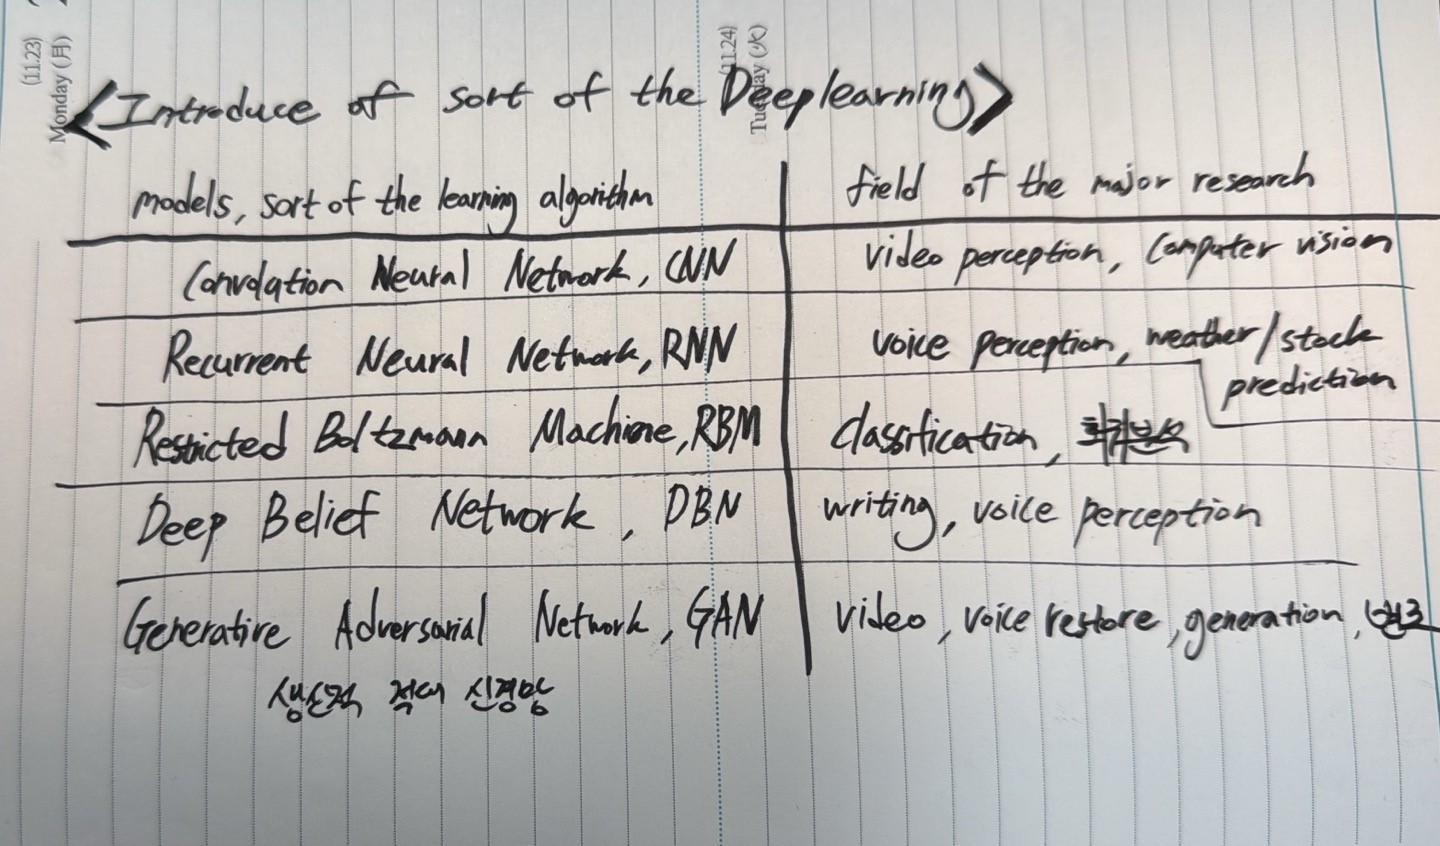 (11.23)
Monday (月)
(11.24)
Tuesday (火)
<Introduce of sort of the Deeplearning>
models, sort of the learning algorithm field of the major research
Convolation Neural Network, CNN video perception, Computer vision
Recurrent Neural Network, RNN voice perception, weather/stock
prediction
Restricted Boltzmann Machine, RBM classification,
Deep Belief Network, DBN writing, voice perception
Generative Adversarial Network, GAN video, voice restore, generation,
적대 신경망